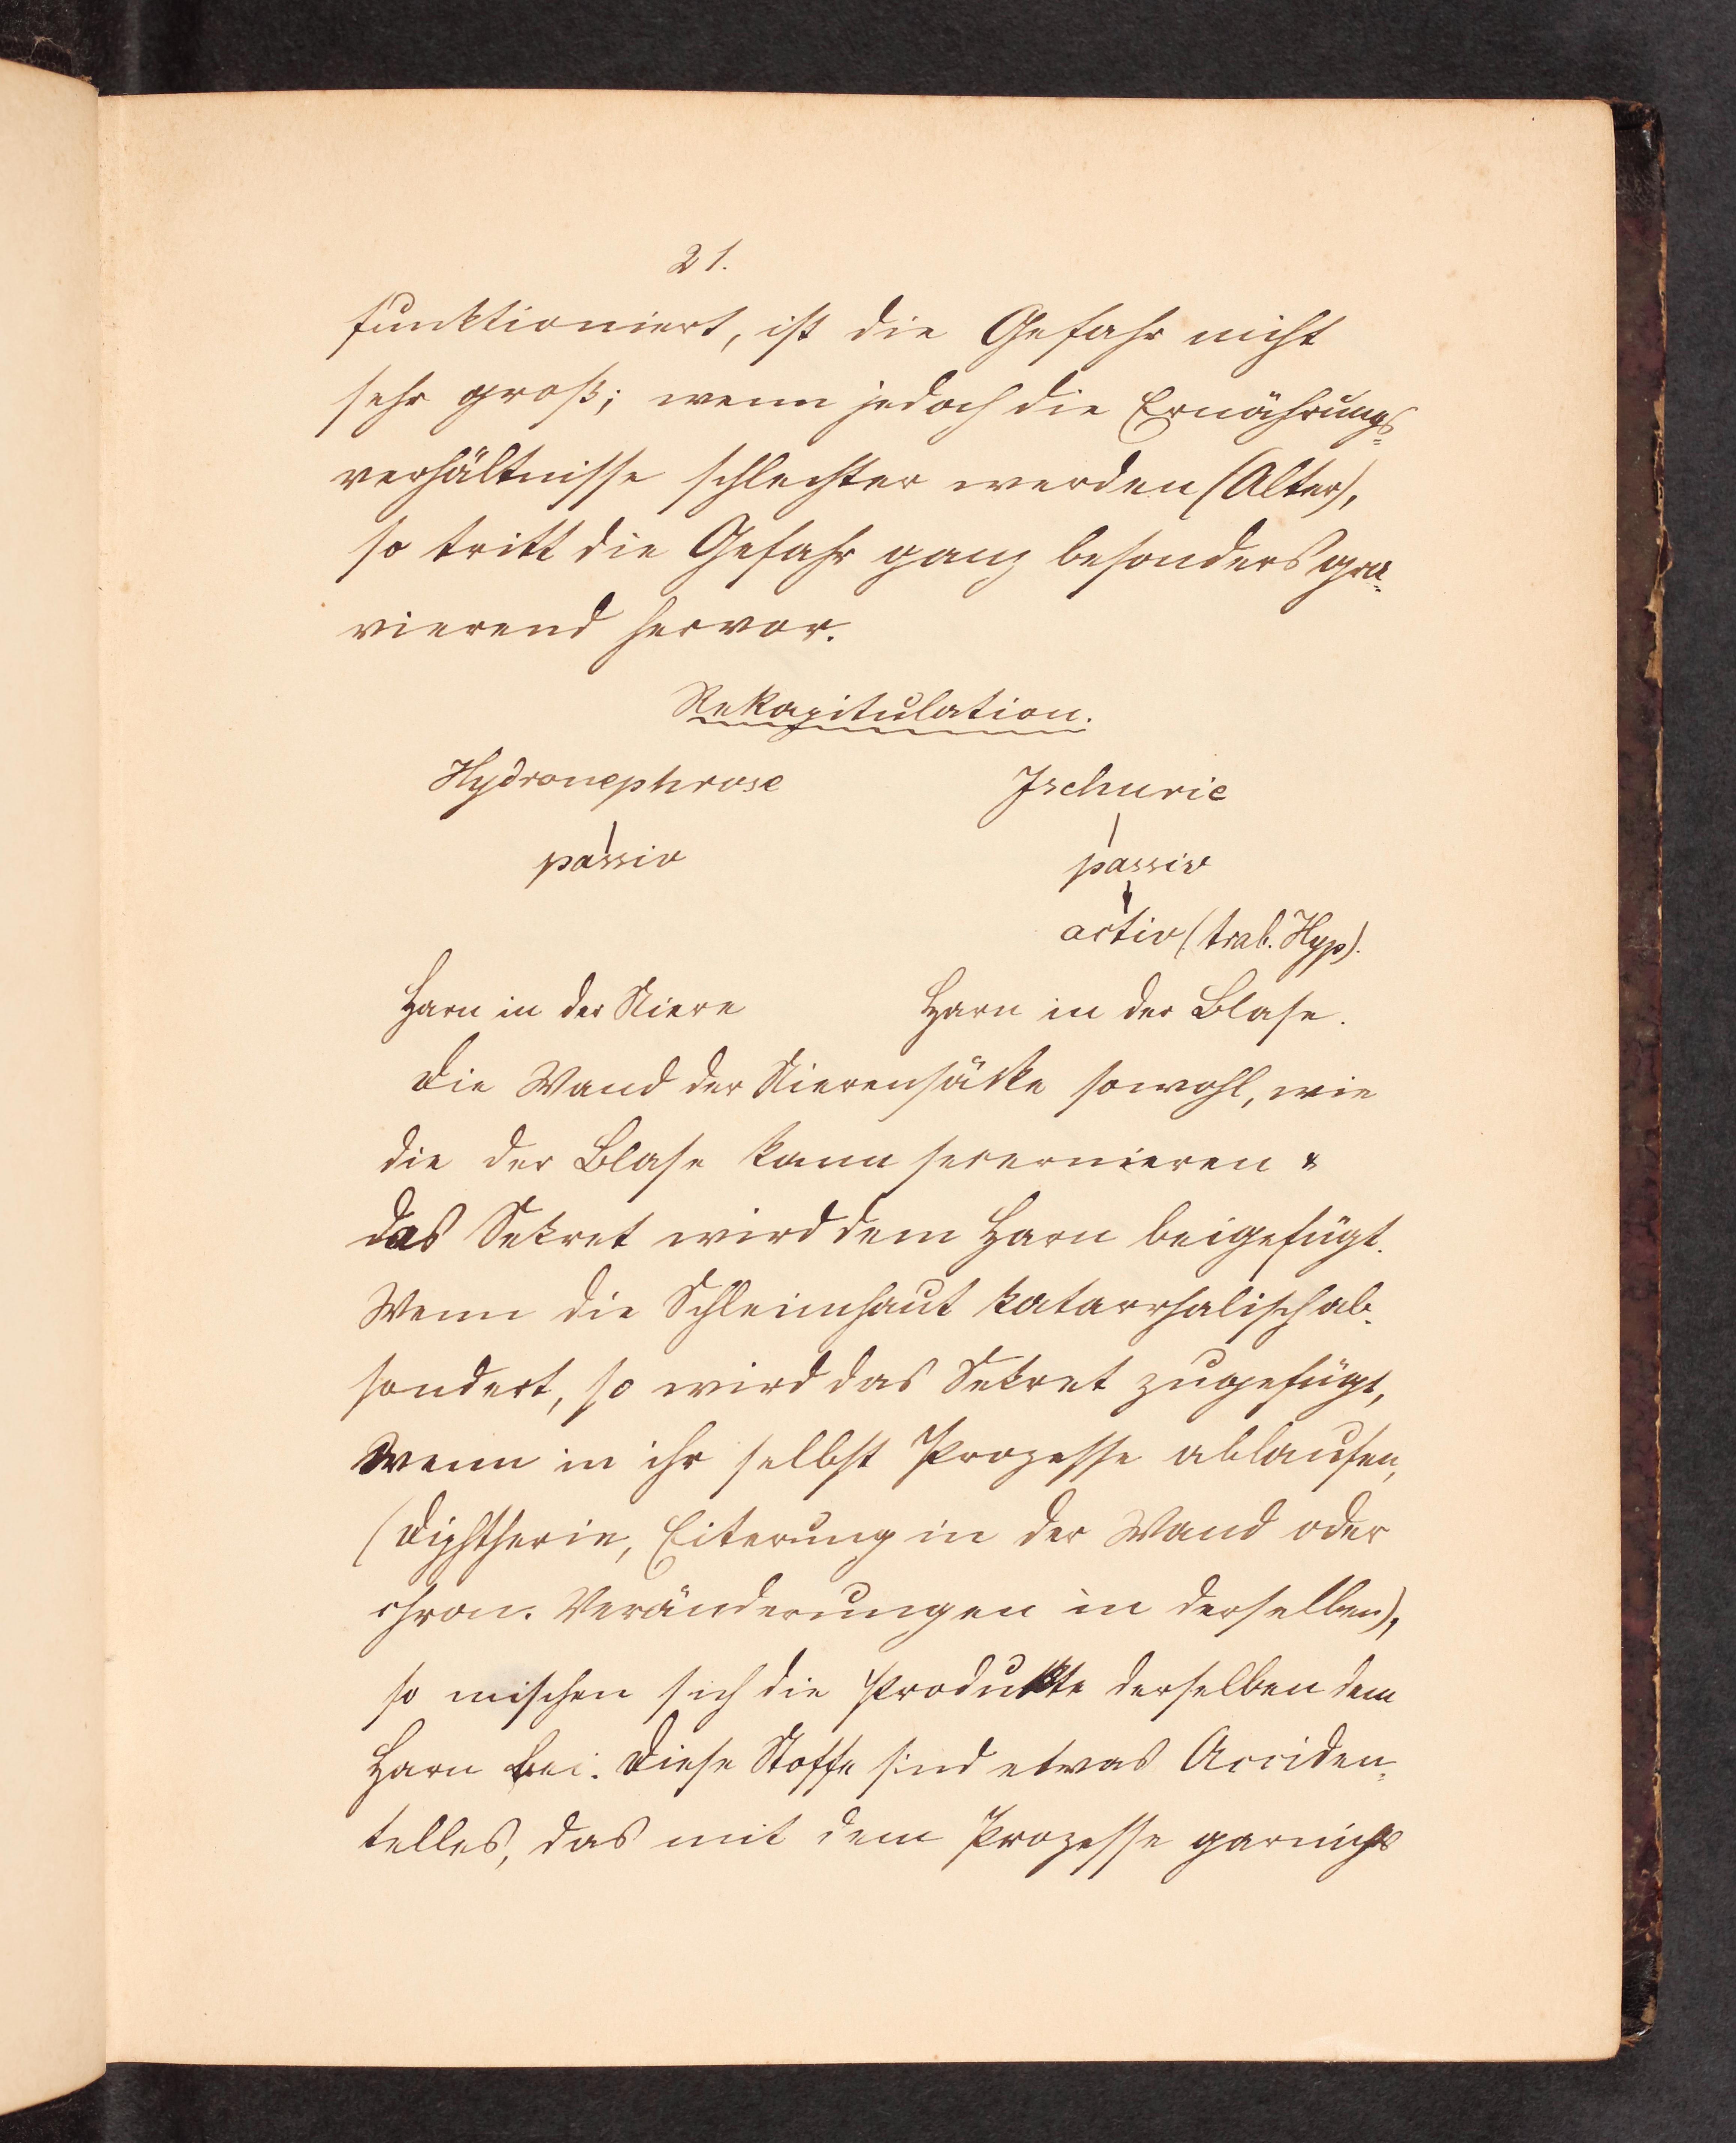 21.
funktioniert, ist die Gefahr nicht
sehr groß; wenn jedoch die Ernährungs-
verhältnisse schlechter werden (Alter),
so tritt die Gefahr ganz besonders gra-
vierend hervor.
Rekapitulation.
Hydronephrose Ischurie
passiv passiv
activ (trab. Hyp).
Harn in der Niere Harn in der Blase.
Die Wand der Nierensäcke sowohl, wie
die der Blase kann secernieren &
das Sekret wird dem Harn beigefügt.
Wenn die Schleimhaut katarrhalisch ab-
sondert, so wird das Sekret zugefügt,
Wenn in ihr selbst Prozesse ablaufen,
(Diphtherie, Eiterung in der Wand oder
chron. Veränderungen in derselben),
so mischen sich die Produkte derselben dem
Harn bei. Diese Stoffe sind etwas Acciden-
telles, das mit dem Prozesse garnichts